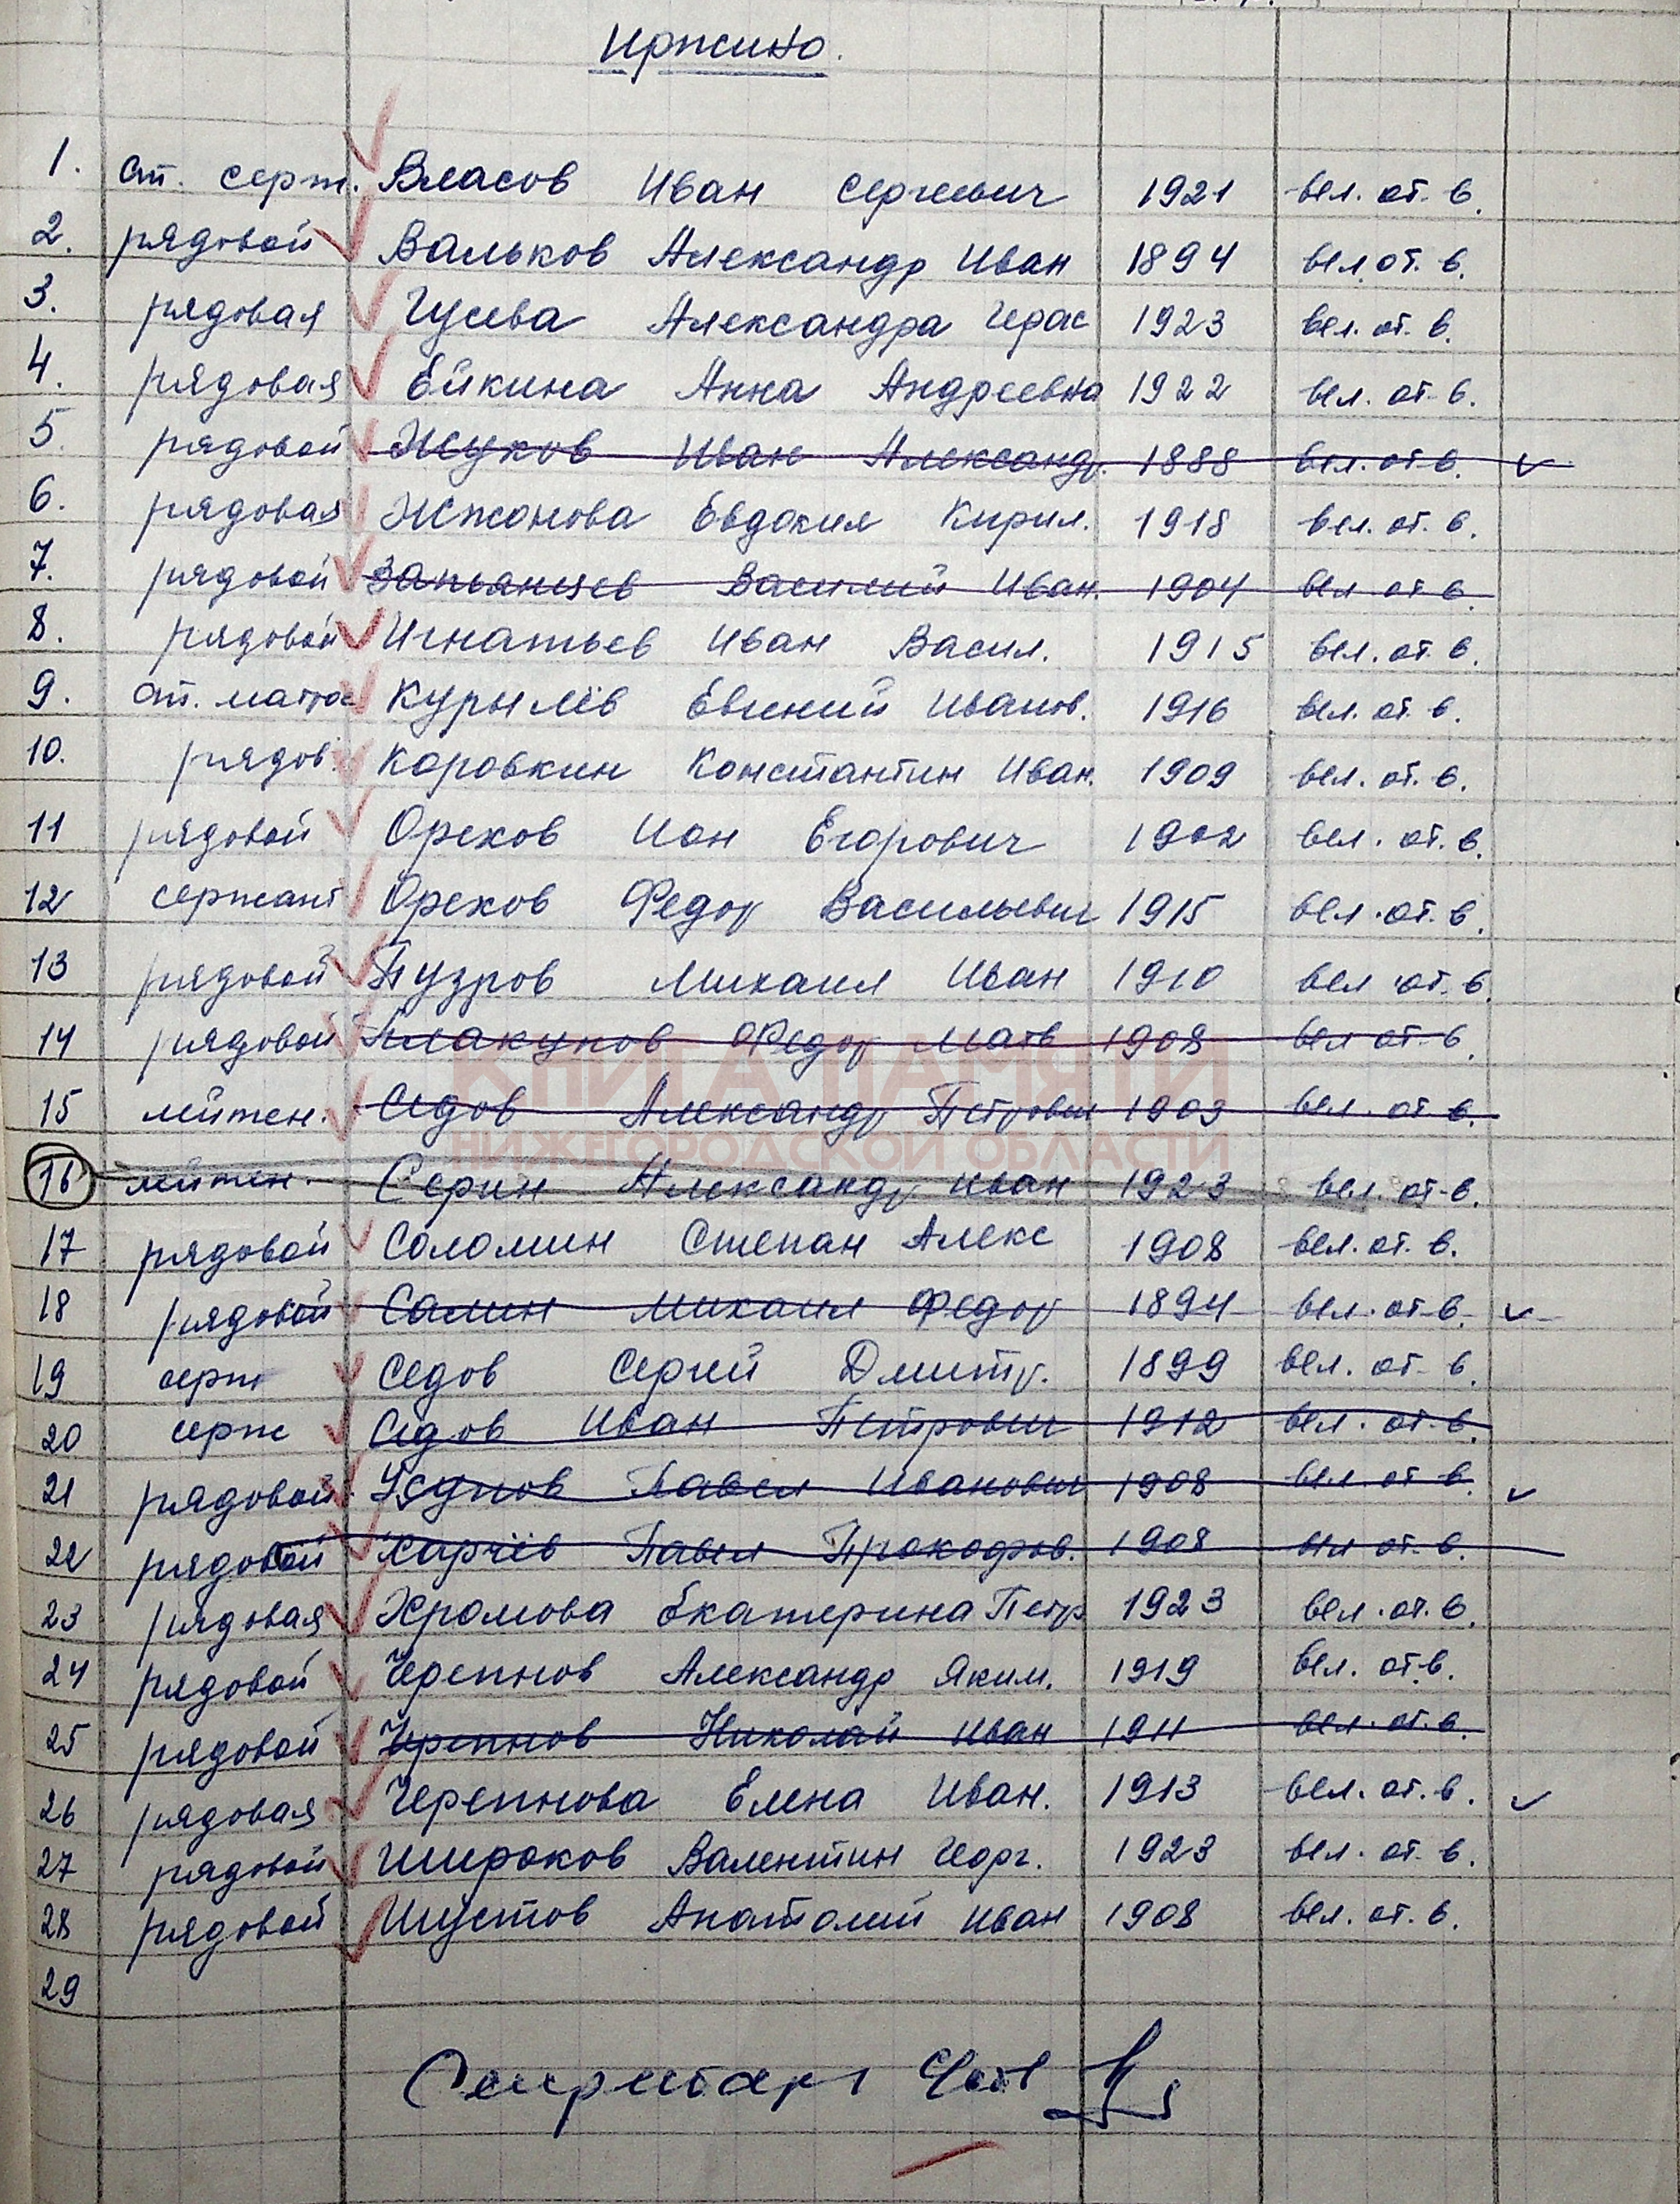 Иржино.
1. ст. серж. Власов Иван Сергеевич 1921 вел. от. в.
2. рядовой Вальков Александр Иван 1894 вел от. в.
3. рядовая Гусева Александра Герас 1923 вел. от. в.
4. рядовая Ейкина Анна Андреевна 1922 вел. от. в.
5. рядовой Жуков Иван Александр. 1888 вел. от в.
6. рядовая Жжонова Евдокия Кирил. 1918 вел. от. в.
7. рядовой Запьянцев Василий Иван. 1904 вел от в.
8. рядовой Игнатьев Иван Васил. 1915 вел. от. в.
9. ст. матрос Курылёв Евгений Иванов. 1916 вел. от. в.
10. рядов. Коровкин Константин Иван. 1909 вел. от. в.
11 рядовой Орехов Ион Егорович 1902 вел. от. в.
12 сержант Орехов Федор Васильевич 1915 вел. от. в.
13 рядовой Пузров Михаил Иван 1910 вел от. в.
14 рядовой Плакунов Федор Матв 1908 вел от в.
КНИГА ПАМЯТИ
15 лейтен. Седов Александр Петрович 1903 вел. от в.
НИЖЕГОРОДСКОЙ ОБЛАСТИ
16 лейтен. Серин Александр Иван 1923 вел. от в.
17 рядовой Соломин Степан Алекс 1908 вел. от. в.
18 рядовой Салин Михаил Федор 1894 вел. от в.
19 серж Седов Сергей Дмитр. 1899 вел. от. в.
20 серж Седов Иван Петрович 1912 вел. от. в.
21 рядовой Павел Иванович 1908 вел. от в.
22 рядовой Харчёв Павел Прокофьев. 1908 вел от. в.
23 рядовая Хромова Екатерина Петр 1923 вел. от. в.
24 рядовой Черепнов Александр Яким. 1919 вел. от. в.
25 рядовой Черепнов Николай Иван 1911 вел. от. в.
26 рядовая Черепнова Елена Иван. 1913 вел. от. в.
27 рядовой Широков Валентин Георг. 1923 вел. от. в.
28 рядовой Шустов Анатолий Иван 1908 вел. от. в.
29
Секретарь